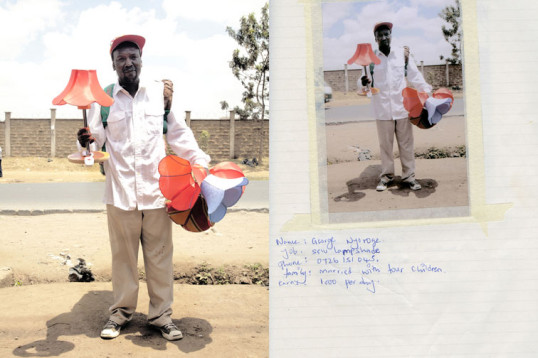 Name: George Njoroge
Job: sell lampshade
Phone: 0726 151 045
family: married with four children
earn: 1000 per day.